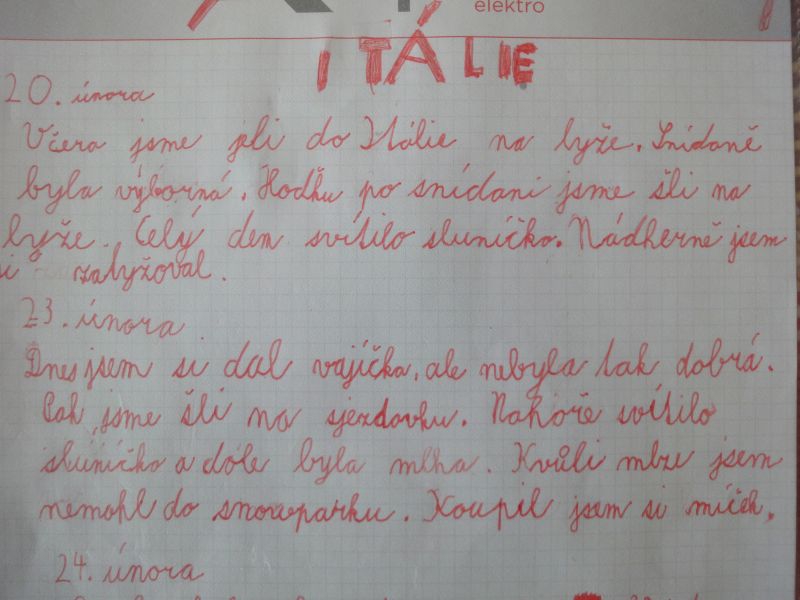 elektro
ITÁLIE
20. února
Včera jsme jeli do Itálie na lyže. Snídaně
byla výborná. Hodku po snídani jsme šli na
lyže. Celý den svítilo sluníčko. Nádherně jsem
si zalyžoval.
23. února
Dnes jsem si dal vajíčka, ale nebyla tak dobrá.
Pak jsme šli na sjezdovku. Nahoře svítilo
sluníčko a dole byla mlha. Kvůli mlze jsem
nemohl do snowparku. Koupil jsem si míček.
24. února